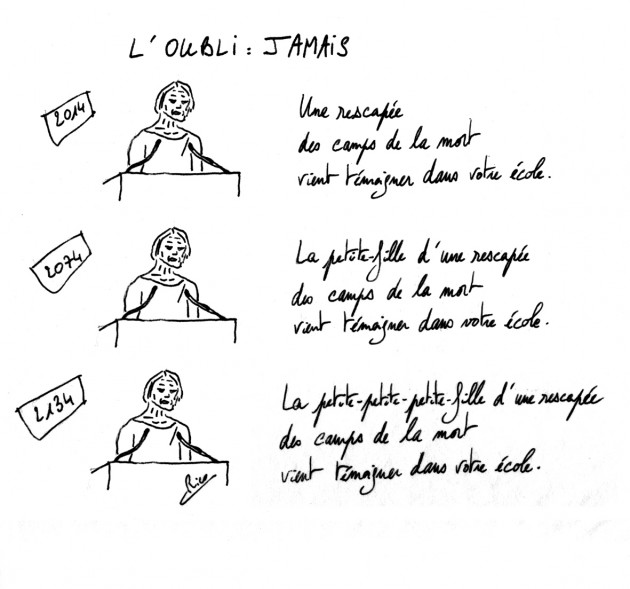 L'OUBLI : JAMAIS
2014
Une rescapée
des camps de la mort
vient témoigner dans votre école.
2074
La petite-fille d'une rescapée
des camps de la mort
vient témoigner dans votre école.
2134
La petite-petite-petite-fille d'une rescapée
des camps de la mort
vient témoigner dans votre école.